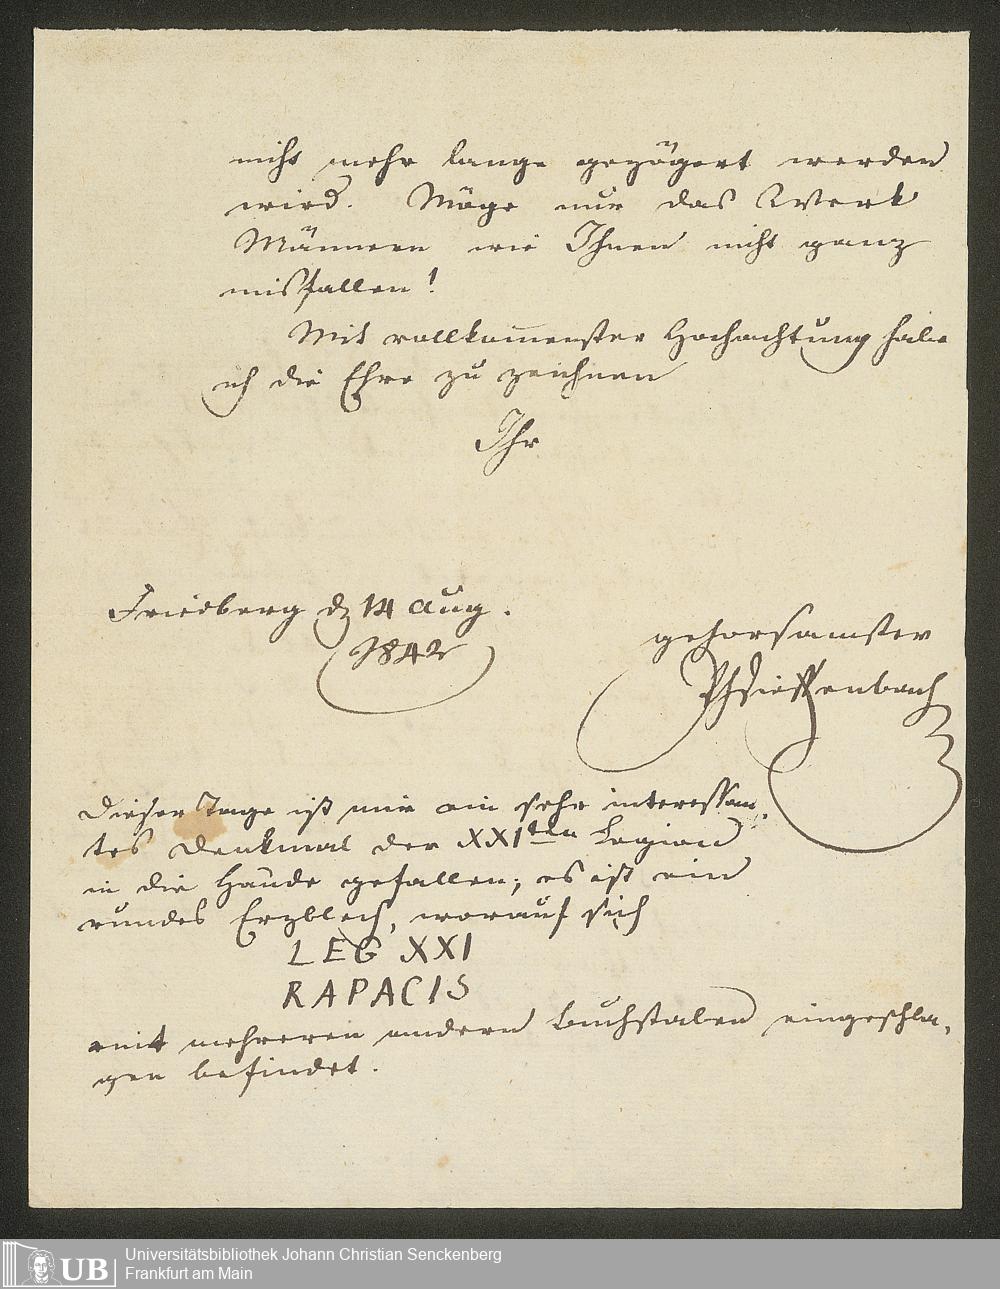 nicht mehr lange gezögert werden
wird. Möge nur das Werk
Männern wie Ihnen nicht ganz
misfallen!
Mit vollkom̅enster Hochachtung habe
ich die Ehre zu zeichnen
Ihr
Friedberg d 14 Aug.
1842
gehorsamster
PhDieffenbach
Dieser Tage ist mir ein sehr interessan,
tes Denkmal der XXIten Legion
in die Hände gefallen; es ist ein
rundes Erzblech, worauf sich
LEG XXI
RAPACIS
mit mehreren andern Buchstaben eingeschla,
gen befindet.
UB
Universitätsbibliothek Johann Christian Senckenberg
Frankfurt am Main